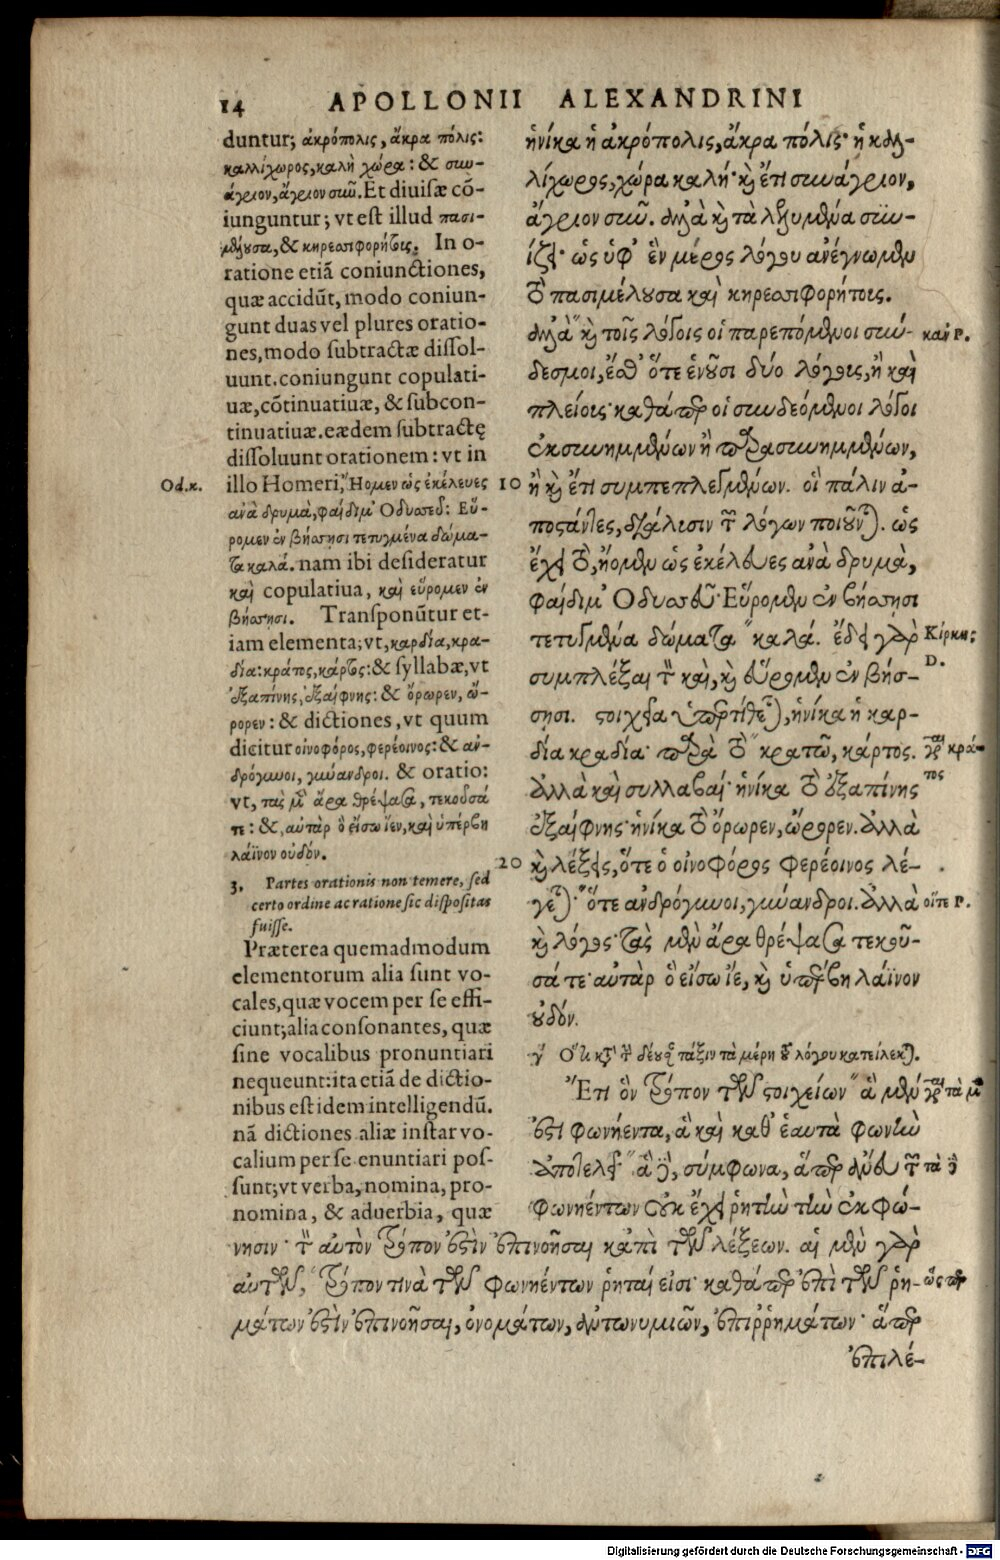 14 APOLLONII ALEXANDRINI
duntur; ἀκρόπολις, ἄκρα πόλις:
καλλίχωρος, καλὴ χώρα: & συ-
άγριον, ἄγριον σῦν. Et diuisæ cō-
iunguntur; vt est illud πασι-
μέλουσα, & κηρεσσιφορήτοις. In o-
ratione etiā coniunctiones,
quæ accidūt, modo coniun-
gunt duas vel plures oratio-
nes, modo subtractæ dissol-
uunt. coniungunt copulati-
uæ, cōtinuatiuæ, & subcon-
tinuatiuæ. eædem subtractę
dissoluunt orationem: vt in
Od.κ.
illo Homeri, Ἤομεν ὡς ἐκέλευες
ἀνὰ δρυμὰ, φαίδιμ' Ὀδυσσεῦ: Εὕ-
ρομεν ἐν βήσσησι τετυγμένα δώμα-
τα καλά. nam ibi desideratur
καὶ copulatiua, καὶ εὕρομεν ἐν
βήσσησι. Transponūtur et-
iam elementa; vt, καρδία, κρα-
δία: κράτος, κάρτος: & syllabæ, vt
ἐξαπίνης, ἐξαίφνης: & ὄρωρεν, ὤ-
ρορεν: & dictiones, vt quum
dicitur οἰνοφόρος, φερέοινος: & ἀν-
δρόγυνοι, γύνανδροι. & oratio:
vt, τὰς μὲν ἄρα θρέψασα, τεκοῦσά
τε: &, αὐτὰρ ὃ εἴσω ἴεν, καὶ ὑπέρβη
λάϊνον οὐδόν.
3. Partes orationis non temere, sed
certo ordine ac ratione sic dispositas
fuisse.
Præterea quemadmodum
elementorum alia sunt vo-
cales, quæ vocem per se effi-
ciunt; alia consonantes, quæ
sine vocalibus pronuntiari
nequeunt: ita etiā de dictio-
nibus est idem intelligendū.
nā dictiones aliæ instar vo-
calium per se enuntiari pos-
sunt; vt verba, nomina, pro-
nomina, & aduerbia, quæ
ἡνίκα ἡ ἀκρόπολις, ἄκρα πόλις· ἡ καλ-
λίχορος, χώρα καλή· καὶ ἔτι συάγριον,
ἄγριον σῦν. ἀλλὰ καὶ τὰ λελυμένα συϊν-
ίζει· ὡς ὑφ' ἓν μέρος λόγου ἀνέγνωμεν
τὸ πασιμέλουσα καὶ κηρεσσιφορήτοις.
ἀλλὰ καὶ τοῖς λόγοις οἱ παρεπόμενοι σύν-
καὶ P.
δεσμοι, ἔσθ' ὅτε ἑνοῦσι δύο λόγους, ἢ καὶ
πλείοις· καθάπερ οἱ συνδεόμενοι λόγοι
ἐκ συνημμένων ἢ παρασυνημμένων,
10 ἢ καὶ ἔτι συμπεπλεγμένων. οἳ πάλιν ἀ-
ποστάντες, διάλυσιν τῶν λόγων ποιοῦνται. ὡς
ἔχει τὸ, ἤομεν ὡς ἐκέλευες ἀνὰ δρυμὰ,
φαίδιμ' Ὀδυσσεῦ· Εὕρομεν ἐν βήσσησι
τετυγμένα δώματα καλά. ἔδει γὰρ
Κίρκης
D.
συμπλέξαι τὸν καὶ, καὶ εὕρομεν ἐν βήσ-
σησι. στοιχεῖα ὑπερτίθεται, ἡνίκα ἡ καρ-
δία κραδία· παρὰ τὸ κρατῶ, κάρτος.
γράφεται κρά-
τος
ἀλλὰ καὶ συλλαβαί· ἡνίκα τὸ ἐξαπίνης
ἐξαίφνης· ἡνίκα τὸ ὄρωρεν, ὤρορεν. ἀλλὰ
20 καὶ λέξεις, ὅτε ὁ οἰνοφόρος φερέοινος λέ-
γεται· ὅτε ἀνδρόγυνοι, γύνανδροι. ἀλλὰ
οἵτε P.
καὶ λόγος· τὰς μὲν ἄρα θρέψασα τεκοῦ-
σά τε· αὐτὰρ ὃ εἴσω ἴε, καὶ ὑπέρβη λάϊνον
οὐδόν.
γ Οὐ κατὰ τὸ δέον τάξιν τὰ μέρη τοῦ λόγου κατείλεκται.
Ἔτι ὃν τρόπον τῶν στοιχείων ἃ μέν
γράφεται τὰ μὲν
ἐστι φωνήεντα, ἃ καὶ καθ' ἑαυτὰ φωνὴν
ἀποτελεῖ· ἃ δὲ, σύμφωνα, ἅπερ ἄνευ τῶν
τὰ δὲ
φωνηέντων οὐκ ἔχει ῥητὴν τὴν ἐκφώ-
νησιν· τὸν αὐτὸν τρόπον ἐστὶν ἐπινοῆσαι κἀπὶ τῶν λέξεων. αἱ μὲν γὰρ
αὐτῶν, τρόπον τινὰ τῶν φωνηέντων ῥηταί εἰσι· καθάπερ ἐπὶ τῶν ῥη-
ὥσπερ
μάτων ἐστὶν ἐπινοῆσαι, ὀνομάτων, ἀντωνυμιῶν, ἐπιρρημάτων· ἅπερ
ἐπιλέ-
Digitalisierung gefördert durch die Deutsche Forschungsgemeinschaft - DFG